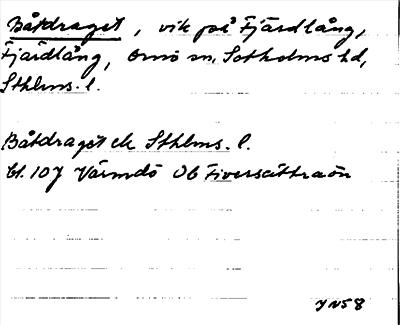 Båtdraget, vik på Fjärdlång,
Fjärdlång, Ornö sn, Sotholms hd,
Sthlms. l.
Båtdraget ek Sthlms. l.
bl. 107 Värmdö OB Fiversättraön
JN58